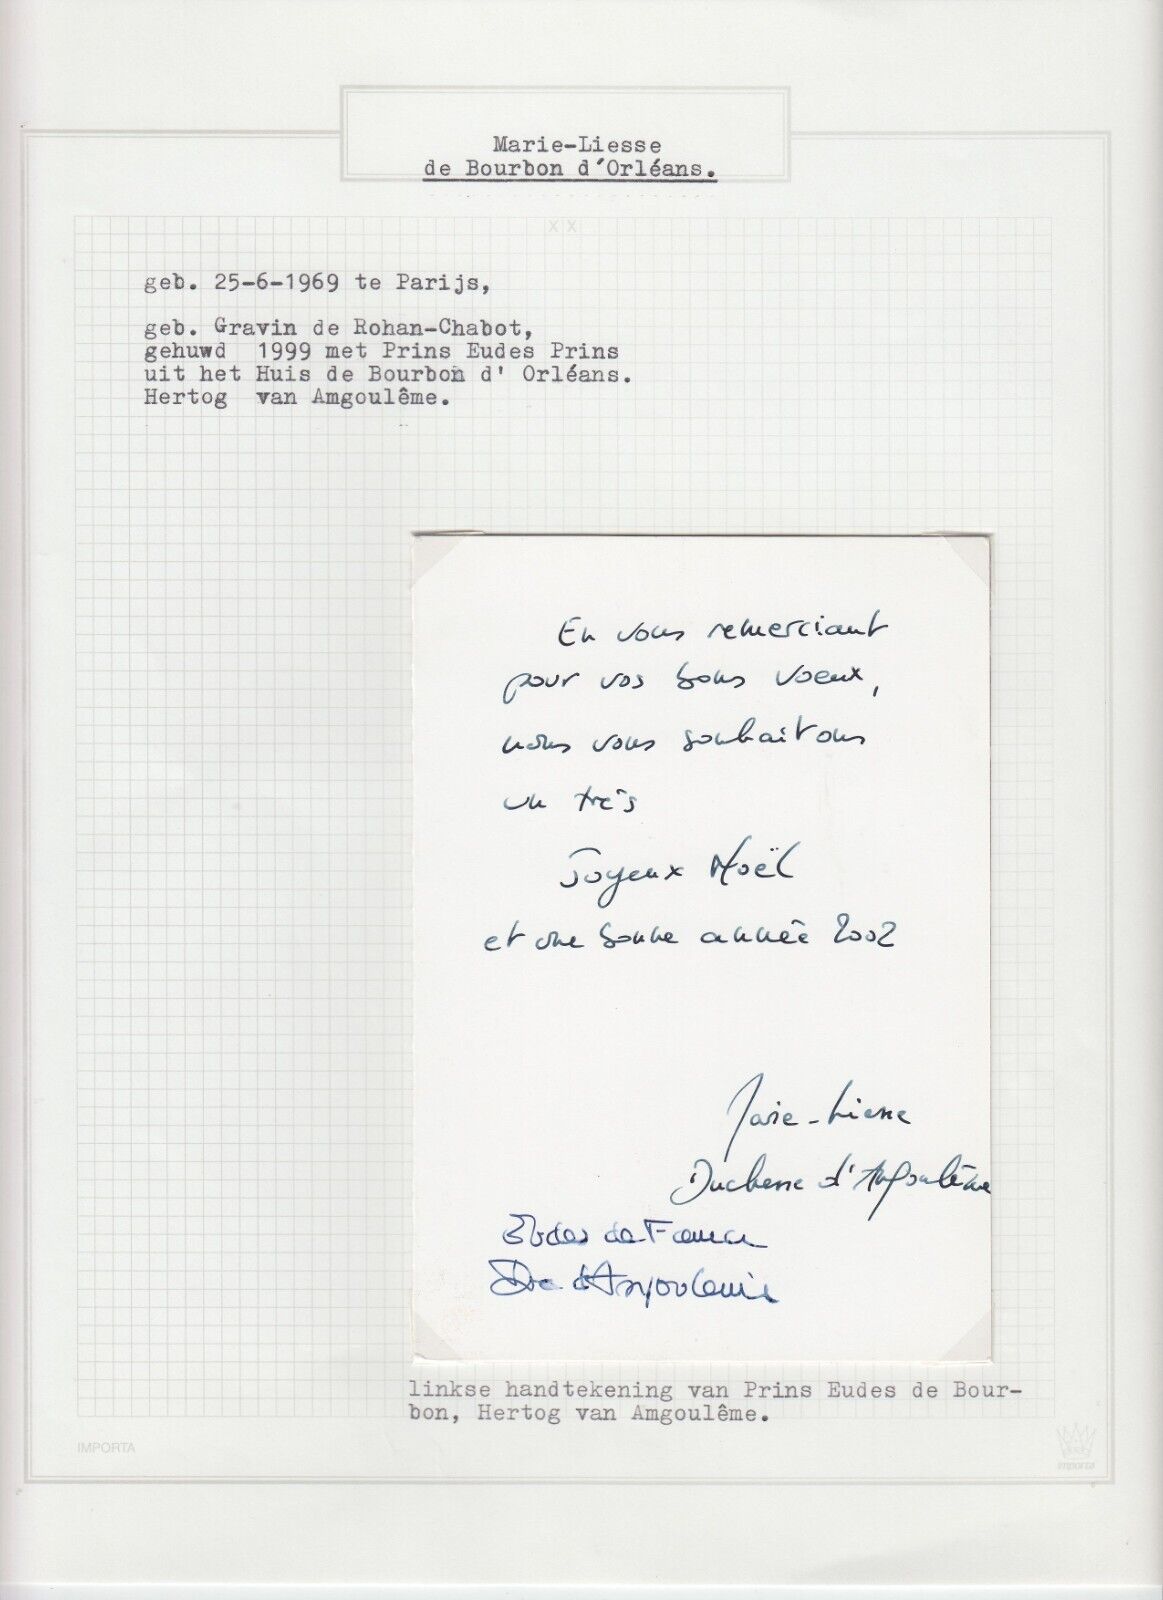 Marie-Liesse
de Bourbon d'Orléans.
XX
geb. 25-6-1969 te Parijs,
geb. Gravin de Rohan-Chabot,
gehuwd 1999 met Prins Eudes Prins
uit het Huis de Bourbon d' Orléans.
Hertog van Amgoulême.
En vous remerciant
pour vos bons voeux,
nous vous souhaitons
un très
Joyeux Noël
et une bonne année 2002
Marie-Liesse
Duchesse d'Angoulême
Eudes de France
Duc d'Angoulême
linkse handtekening van Prins Eudes de Bour-
bon, Hertog van Amgoulême.
IMPORTA
importa